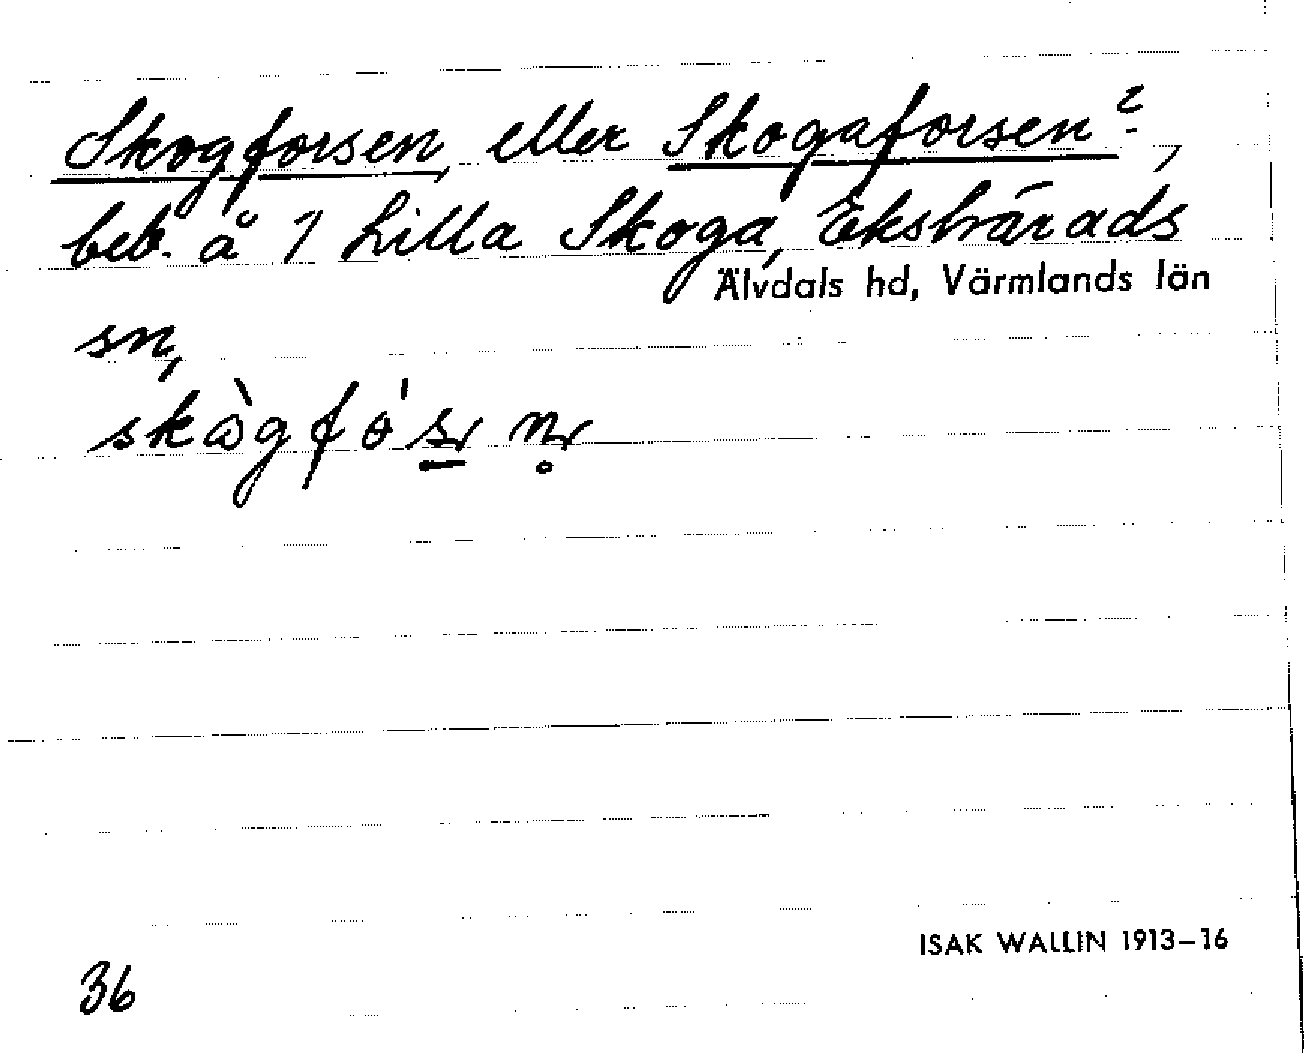 Skogforsen, eller Skogaforsen?,
beb. å 1 Lilla Skoga, Ekshärads
Älvdals hd, Värmlands län
sn,
ISAK WALLIN 1913–16
36